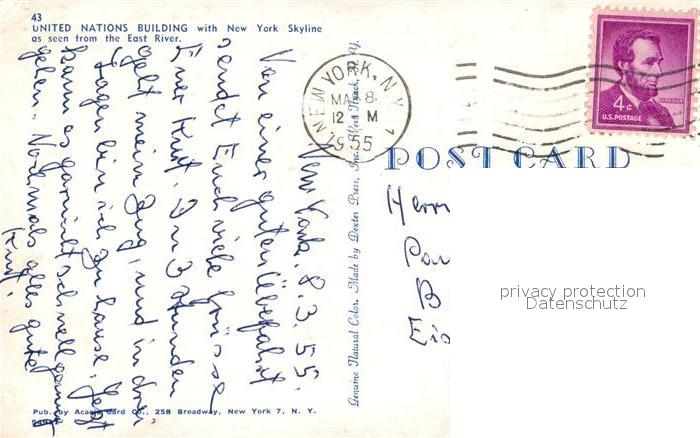 43
UNITED NATIONS BUILDING with New York Skyline
as seen from the East River.
New York. 8.3.55.
Von einer guten Überfahrt
sendet Euch viele Grüsse
Euer Kurt. In 3 Stunden
geht mein Zug, und in drei
Tagen bin ich zu Hause. Jetzt
kann es garnicht schnell genug
gehen. Nochmals alles gute
Kurt.
Pub. by Acacia Card Co., 258 Broadway, New York 7, N. Y.
Genuine Natural Color. Made by Dexter Press, Inc. West Nyack, N. Y.
NEW YORK, N.Y. 1
MAR 8
12 M
1955
LINCOLN
4¢
U.S. POSTAGE
POST CARD
Herrn
Pau
B
Eis
privacy protection
Datenschutz